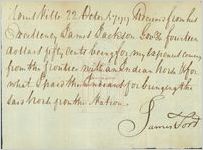 Knoxville 22 Octobr 1797 Received from his
Excellency James Jackson Esqr fourteen
dollars fifty Cents being for my expences coming
from the frontier with an Indian Horse & for
what I paid the Indians for bringing the
said Horse from the Nation.
James Ford